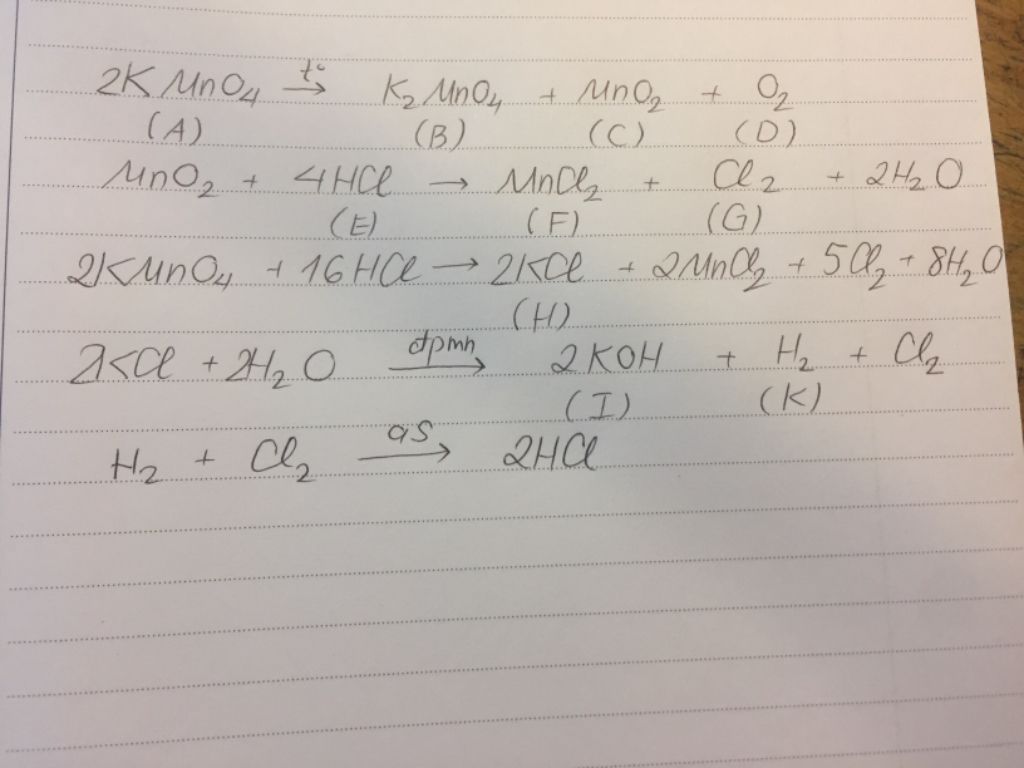 2KMnO₄ t° → K₂MnO₄ + MnO₂ + O₂
(A) (B) (C) (D)
MnO₂ + 4HCl → MnCl₂ + Cl₂ + 2H₂O
(E) (F) (G)
2KMnO₄ + 16HCl → 2KCl + 2MnCl₂ + 5Cl₂ + 8H₂O
(H)
2KCl + 2H₂O đpmn → 2KOH + H₂ + Cl₂
(I) (K)
H₂ + Cl₂ as → 2HCl